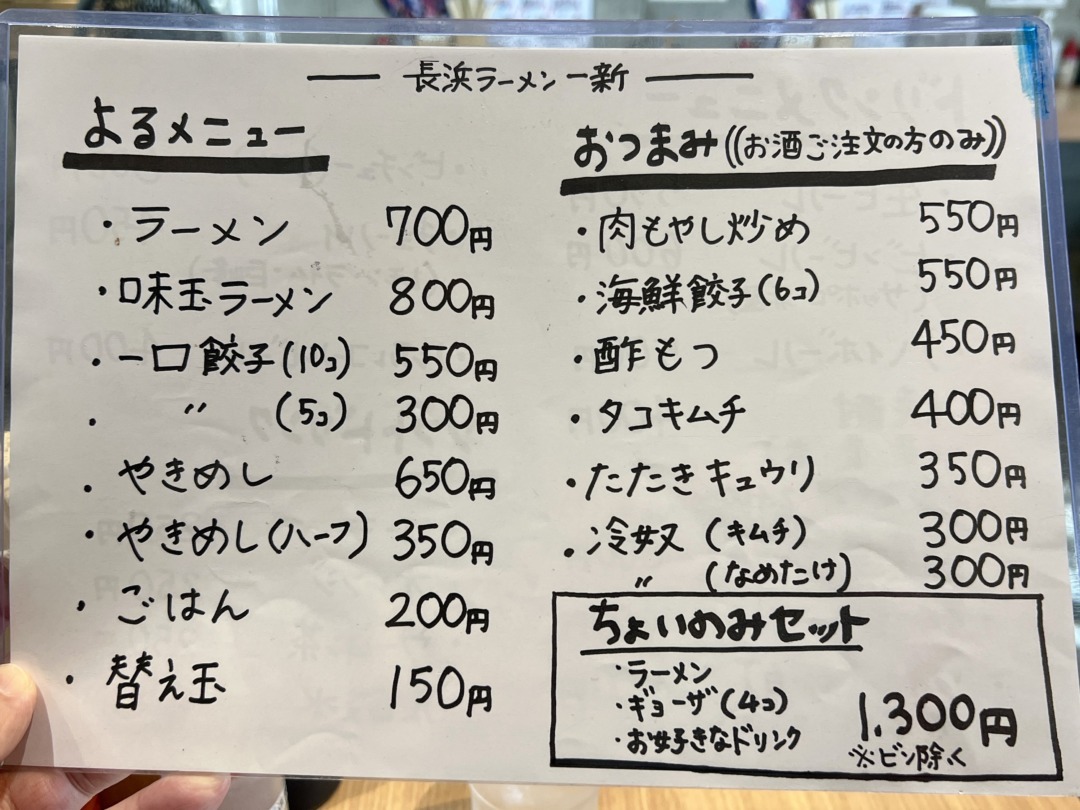 長浜ラーメン一新
よるメニュー
・ラーメン 700円
・味玉ラーメン 800円
・一口餃子(10コ) 550円
・ 〃 (5コ) 300円
・やきめし 650円
・やきめし(ハーフ) 350円
・ごはん 200円
・替え玉 150円
おつまみ((お酒ご注文の方のみ))
・肉もやし炒め 550円
・海鮮餃子(6コ) 550円
・酢もつ 450円
・タコキムチ 400円
・たたきキュウリ 350円
・冷奴 (キムチ) 300円
〃 (なめたけ) 300円
ちょいのみセット
・ラーメン
・ギョーザ(4コ)
・お好きなドリンク
1,300円
※ビン除く